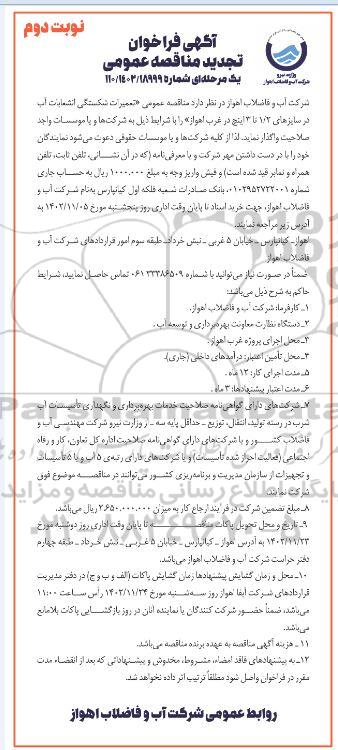 نوبت دوم
آگهی فراخوان
تجدید مناقصه عمومی
یک مرحله‌ای شماره ۱۱۰/۱۴۰۲/۱۸۹۹۹
وزارت نیرو
شرکت آب و فاضلاب اهواز
شرکت آب و فاضلاب اهواز در نظر دارد مناقصه عمومی «تعمیرات شکستگی انشعابات آب
در سایزهای ۱/۲ تا ۳ اینچ در غرب اهواز» را با شرایط ذیل به شرکت‌ها و یا موسسات واجد
صلاحیت واگذار نماید. لذا از کلیه شرکت‌ها و یا موسسات حقوقی دعوت می‌شود نمایندگان
خود را با در دست داشتن مهر شرکت و با معرفی‌نامه (که در آن نشانی، تلفن ثابت، تلفن
همراه و نمابر قید شده است) و فیش واریز وجه به مبلغ ۱۰۰۰.۰۰۰ ریال به حساب جاری
شماره ۰۱۰۲۹۵۲۷۲۲۰۰۱ بانک صادرات شعبه فلکه اول کیانپارس به‌نام شرکت آب و
فاضلاب اهواز، جهت خرید اسناد تا پایان وقت اداری روز پنجشنبه مورخ ۱۴۰۲/۱۱/۰۵ به
آدرس زیر مراجعه نمایند.
اهواز- کیانپارس - خیابان ۵ غربی - نبش خرداد- طبقه سوم امور قراردادهای شرکت آب و
فاضلاب اهواز
ضمناً در صورت نیاز می‌توانید با شماره ۰۶۱۳۳۳۸۶۵۰۹ تماس حاصل نمایید، شرایط
حاکم به شرح ذیل می‌باشد:
۱- کارفرما: شرکت آب و فاضلاب اهواز.
۲- دستگاه نظارت معاونت بهره‌برداری و توسعه آب.
۳- محل اجرای پروژه غرب اهواز.
۴- محل تأمین اعتبار: درآمدهای داخلی (جاری).
۵- مدت اجرای کار: ۱۲ ماه.
۶- مدت اعتبار پیشنهادها: ۳ ماه.
۷- شرکت‌های دارای گواهی‌نامه صلاحیت خدمات بهره‌برداری و نگهداری تأسیسات آب
شرب در رسته تولید، انتقال، توزیع - حداقل پایه سه - از وزارت نیرو شرکت مهندسی آب و
فاضلاب کشور و یا شرکت‌های دارای گواهی‌نامه صلاحیت اداره کل تعاون، کار و رفاه
اجتماعی (فعالیت احراز شده تأسیسات) و یا شرکت‌های دارای رتبه‌ی ۵ آب و یا ۵ تأسیسات
و تجهیزات از سازمان مدیریت و برنامه‌ریزی کشور می‌توانند در مناقصه موضوع فوق
شرکت نمایند.
۸- مبلغ تضمین شرکت در فرآیند ارجاع کار به میزان ۲.۶۵۰.۰۰۰.۰۰۰ ریال می‌باشد.
۹- تاریخ و محل تحویل پاکات مناقصه تا پایان وقت اداری روز دوشنبه مورخ
۱۴۰۲/۱۱/۲۳ به آدرس اهواز - کیانپارس - خیابان ۵ غربی - نبش خرداد - طبقه چهارم
دفتر حراست شرکت آب و فاضلاب اهواز می‌باشد.
۱۰- محل و زمان گشایش پیشنهادها زمان گشایش پاکات (الف و ب و ج) در دفتر مدیریت
قراردادهای شرکت آبفا اهواز روز سه‌شنبه مورخ ۱۴۰۲/۱۱/۲۴ رأس ساعت ۱۱:۰۰
می‌باشد، ضمناً حضور شرکت کنندگان یا نماینده آنان در روز بازگشایی پاکات بلامانع
می‌باشد.
۱۱- هزینه آگهی مناقصه به عهده برنده مناقصه می‌باشد.
۱۲- به پیشنهادهای فاقد امضاء، مشروط، مخدوش و پیشنهاداتی که بعد از انقضاء مدت
مقرر در فراخوان واصل شود مطلقاً ترتیب اثر داده نخواهد شد.
روابط عمومی شرکت آب و فاضلاب اهواز